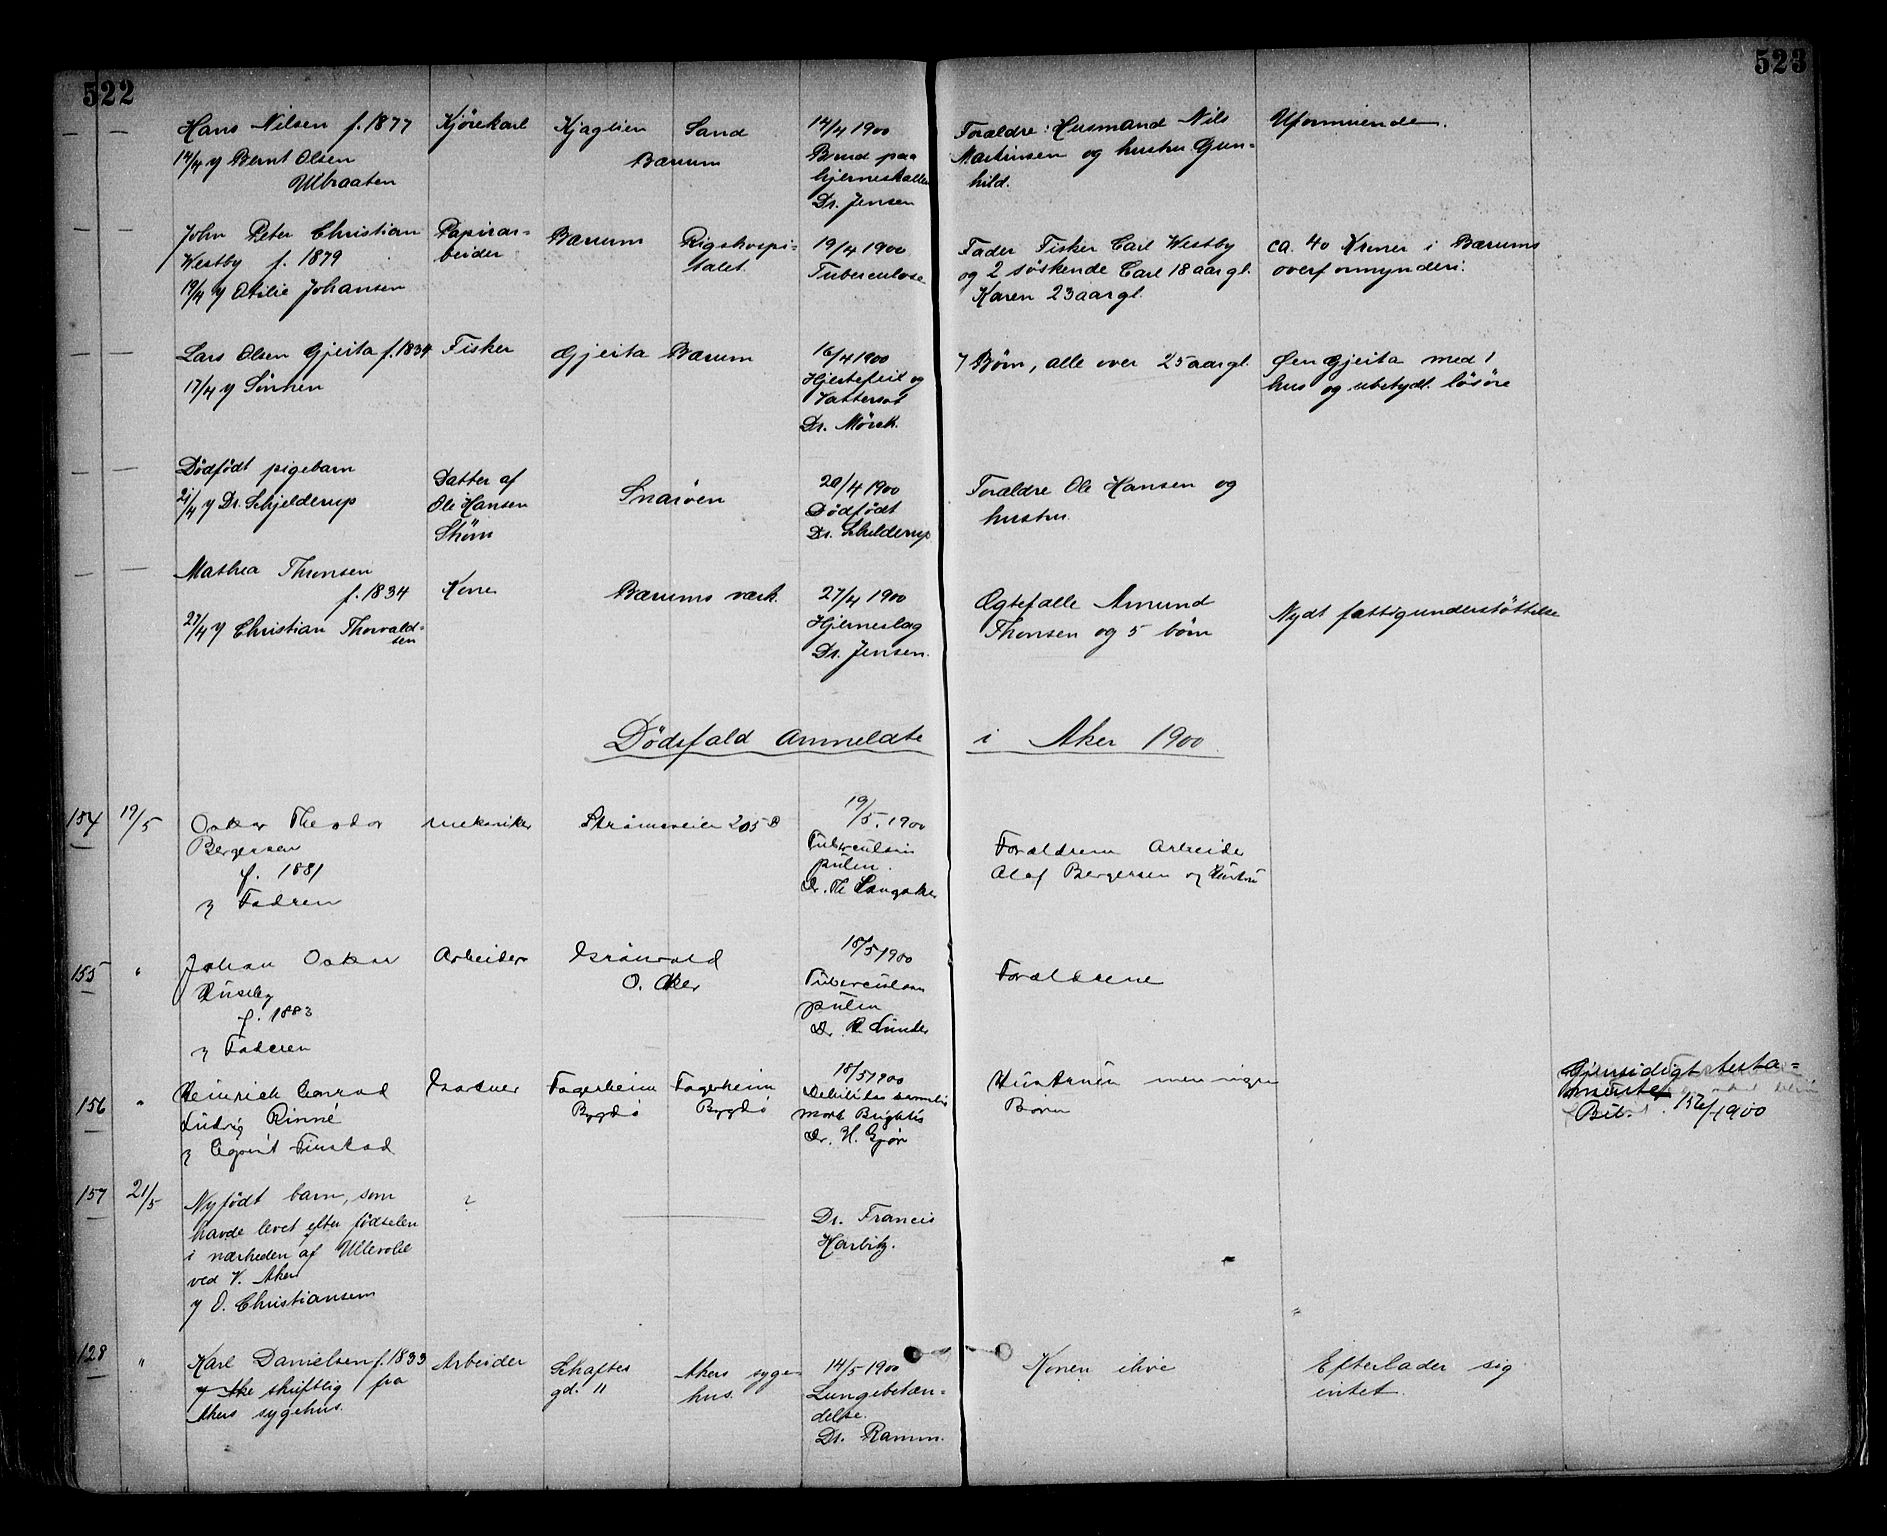 522
523
Hans Nilsen f. 1877
14/4 Bernt Olsen
Ulbraaten
Kjørekarl
Kjaglien
Sand
Bærum
14/4 1900
Brud paa
hjerneskallen
Dr. Jensen
Forældre: Husmand Nils
Martinsen og hustru Gun-
hild.
Uformuende.
John Peter Christian
Westby f. 1879
19/4 Otilie Johansen
Papirar-
beider
Bærum
Rigshospi-
talet.
19/4 1900
Tuberculose
Fader Fisker Carl Westby
og 2 søskende Carl 18 aar gl.
Karen 23 aar gl.
ca. 40 Kroner i Bærums
overformynderi.
Lars Olsen Gjeita f. 1834
17/4 Sønnen
Fisker
Gjeita
Bærum
16/4 1900
Hjertefeil og
Vattersot
Dr. Mørck.
7 Børn, alle over 25 aar gl.
Øen Gjeita med 1
hus og ubetydl. løsøre
Dødfødt pigebarn
21/4 Dr. Schjelderup
Datter af
Ole Hansen
Snarøen
20/4 1900
Dødfødt
Dr. Schilderup
Forældre Ole Hansen og
hustru.
Mathea Thonsen
f. 1834
27/4 Christian Thorvald-
sen
Kone
Bærums værk.
27/4 1900
Hjerneslag
Dr. Jensen.
Ægtefælle Amund
Thonsen og 5 børn
Nydt fattigunderstøttelse
Dødsfald anmeldte i Aker 1900
154
19/5
Oskar Theodor
Bergersen
f. 1881
Fadren
Mekaniker
Strømsveien 205 B
19/5. 1900
Tuberculosis
pulm.
Dr. Th
Forældrene Arbeider
Olaf Bergersen og Hustru
155
"
Johan Oskar
Huseby
f. 1883
Faderen
Arbeider
O. Aker
18/5 1900
Tuberculosis
pulm
Dr. R. Lunder
Forældrene
156
"
Heinrich Conrad
Ludvig Rinné
Agent Finstad
Fagerheim
Bygdø
Fagerheim
Bygdø
18/5 1900
Debilitas
Morb Brightii
Dr. H. Gjør
Hustruen men ingen
Børn
Gjensidigt testa-
mente
1900
157
21/5
Nyfødt barn, som
havde levet efter fødselen
i nærheden af Ullevold
ved V. Aker
O. Christiansen
?
Dr. Francis
Harbitz.
128
"
Karl Danielsen f. 1833
skriftlig fra
Akers sygehus.
Arbeider
Schaftes
gd. 11
Akers syge-
hus.
14/5 1900
Lungebetæn-
delse.
Dr. Ramm.
Konen ilive
Efterlader sig
intet.